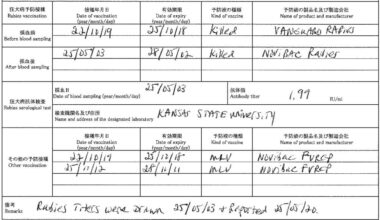 狂犬病予防接種
Rabies vaccination
接種年月日
Date of vaccination
(year/month/day)
有効期限
Date of expiry
(year/month/day)
予防液の種類
Kind of vaccine
予防液の製品名及び製造会社
Name of product and manufacturer
採血前
Before blood sampling
22/10/19
25/10/18
Killed
VANGUARD RABIES
採血後
After blood sampling
25/05/03
28/05/02
Killed
NOVIBAC RABIES
狂犬病抗体検査
Rabies serological test
採血日
Date of blood sampling (year/month/day)
25/05/03
抗体価
Antibody titer
1.99
IU/ml
検査機関名及び住所
Name and address of the designated laboratory
KANSAS STATE UNIVERSITY
その他の予防接種
Other vaccination
接種年月日
Date of vaccination
(year/month/day)
有効期限
Date of expiry
(year/month/day)
予防液の種類
Kind of vaccine
予防液の製品名及び製造会社
Name of product and manufacturer
22/10/19
25/10/18
MLV
NOVIBAC FVRCP
25/11/12
28/11/11
MLV
NOVIBAC FVRCP
備考
Remarks
Rabies Titers were Drawn 25/05/03 + Reported 25/05/20.